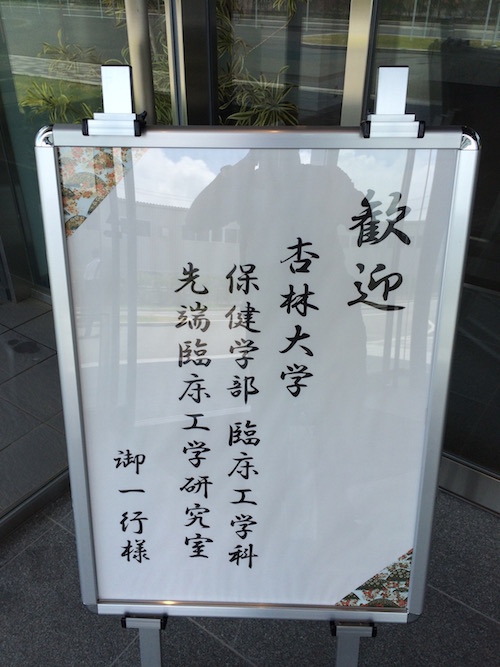 歓迎
杏林大学
保健学部 臨床工学科
先端臨床工学研究室
御一行様